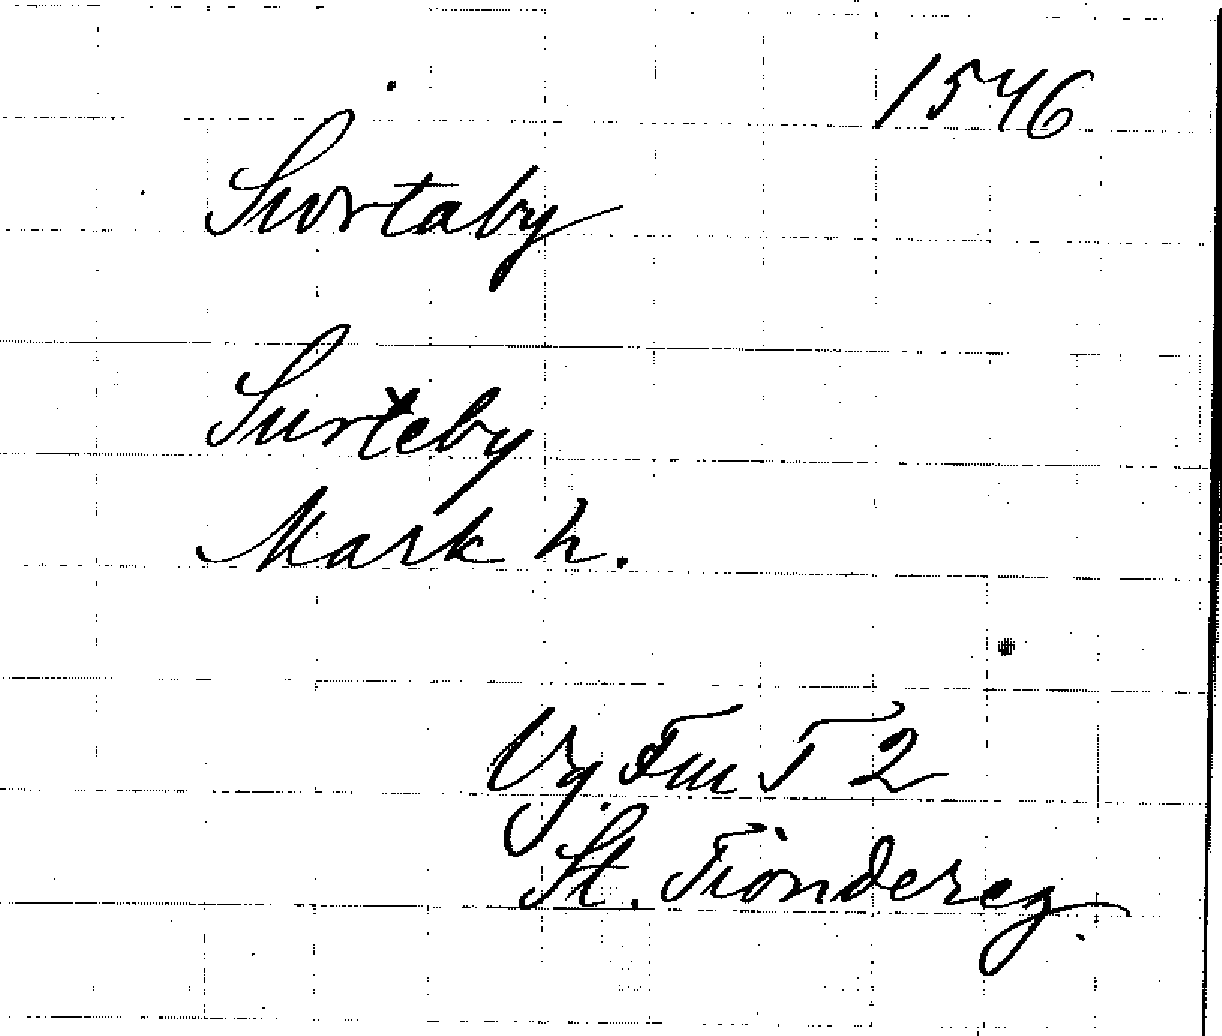 1546
Swortaby
Surteby
Mark h.
Vg. Fm T 2
St. Tiondereg.